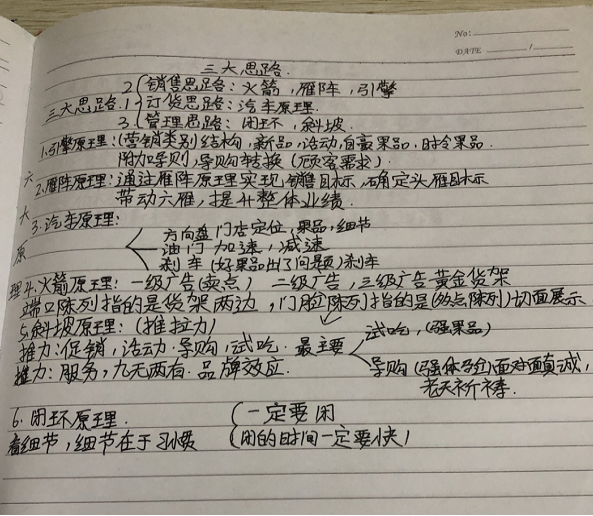 No:
DATE /
三大思路.
2 销售思路：火箭，雁阵，引擎
三大思路.1 订货思路：汽车原理.
3 管理思路：闭环，斜坡.
1.引擎原理：(营销类别结构，新品，活动，自豪果品，时令果品.
附加导则，导购转换(顾客需求).
六大原理
2.雁阵原理：通过雁阵原理实现销售目标，确定头雁目标
带动六雁，提升整体业绩.
3.汽车原理：
方向盘 门店定位，果品，细节
油门 加速，减速
刹车 (好果品出了问题)刹车
4.火箭原理：一级广告(卖点) 二级广告，三级广告黄金货架
端口陈列指的是货架两边，门脸陈列指的是(多点陈列)切面展示
5.斜坡原理：(推拉力)
推力：促销，活动.导购，试吃.最主要
试吃，(强果品)
导购(强体验)面对面真诚，
推力：服务，九无两有.品牌效应.
6.闭环原理.
(一定要闭
看细节，细节在于习惯
(闭的时间一定要快)